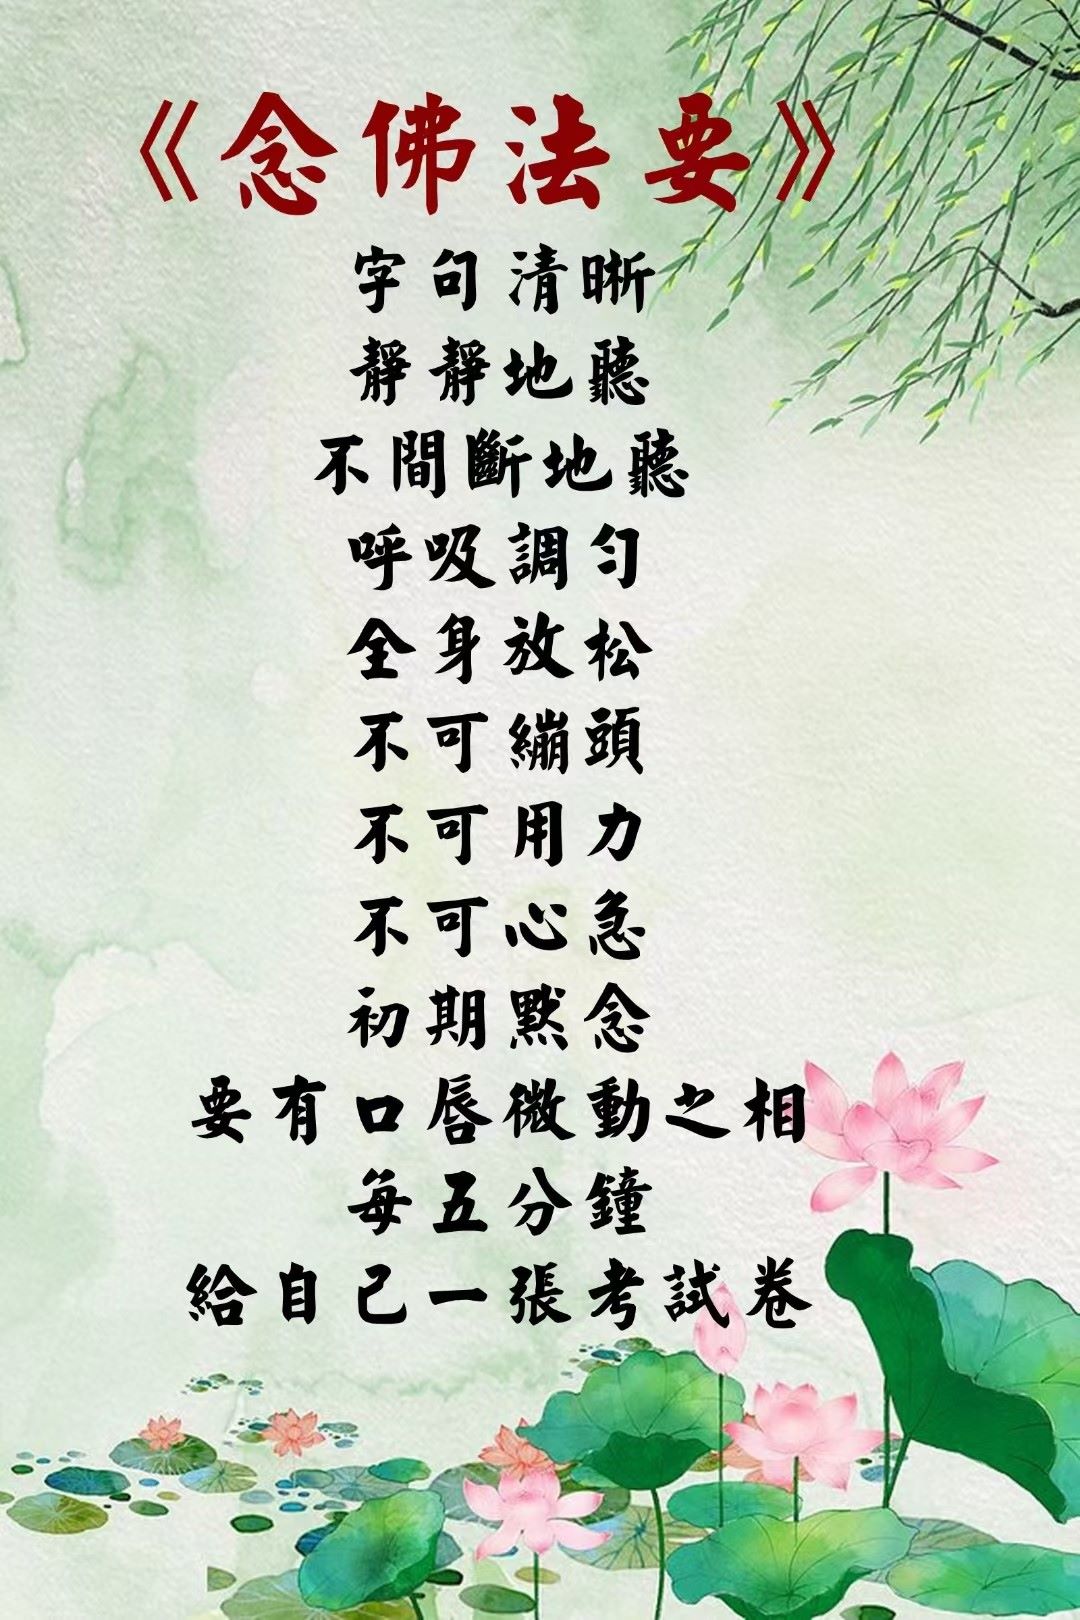 《念佛法要》
字句清晰
靜靜地聽
不間斷地聽
呼吸調勻
全身放松
不可繃頭
不可用力
不可心急
初期默念
要有口唇微動之相
每五分鐘
給自己一張考試卷